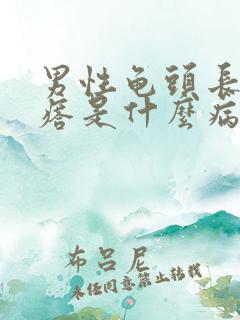 男性龟頭長
痞是什麼病
布吕尼
未经同意禁止转载